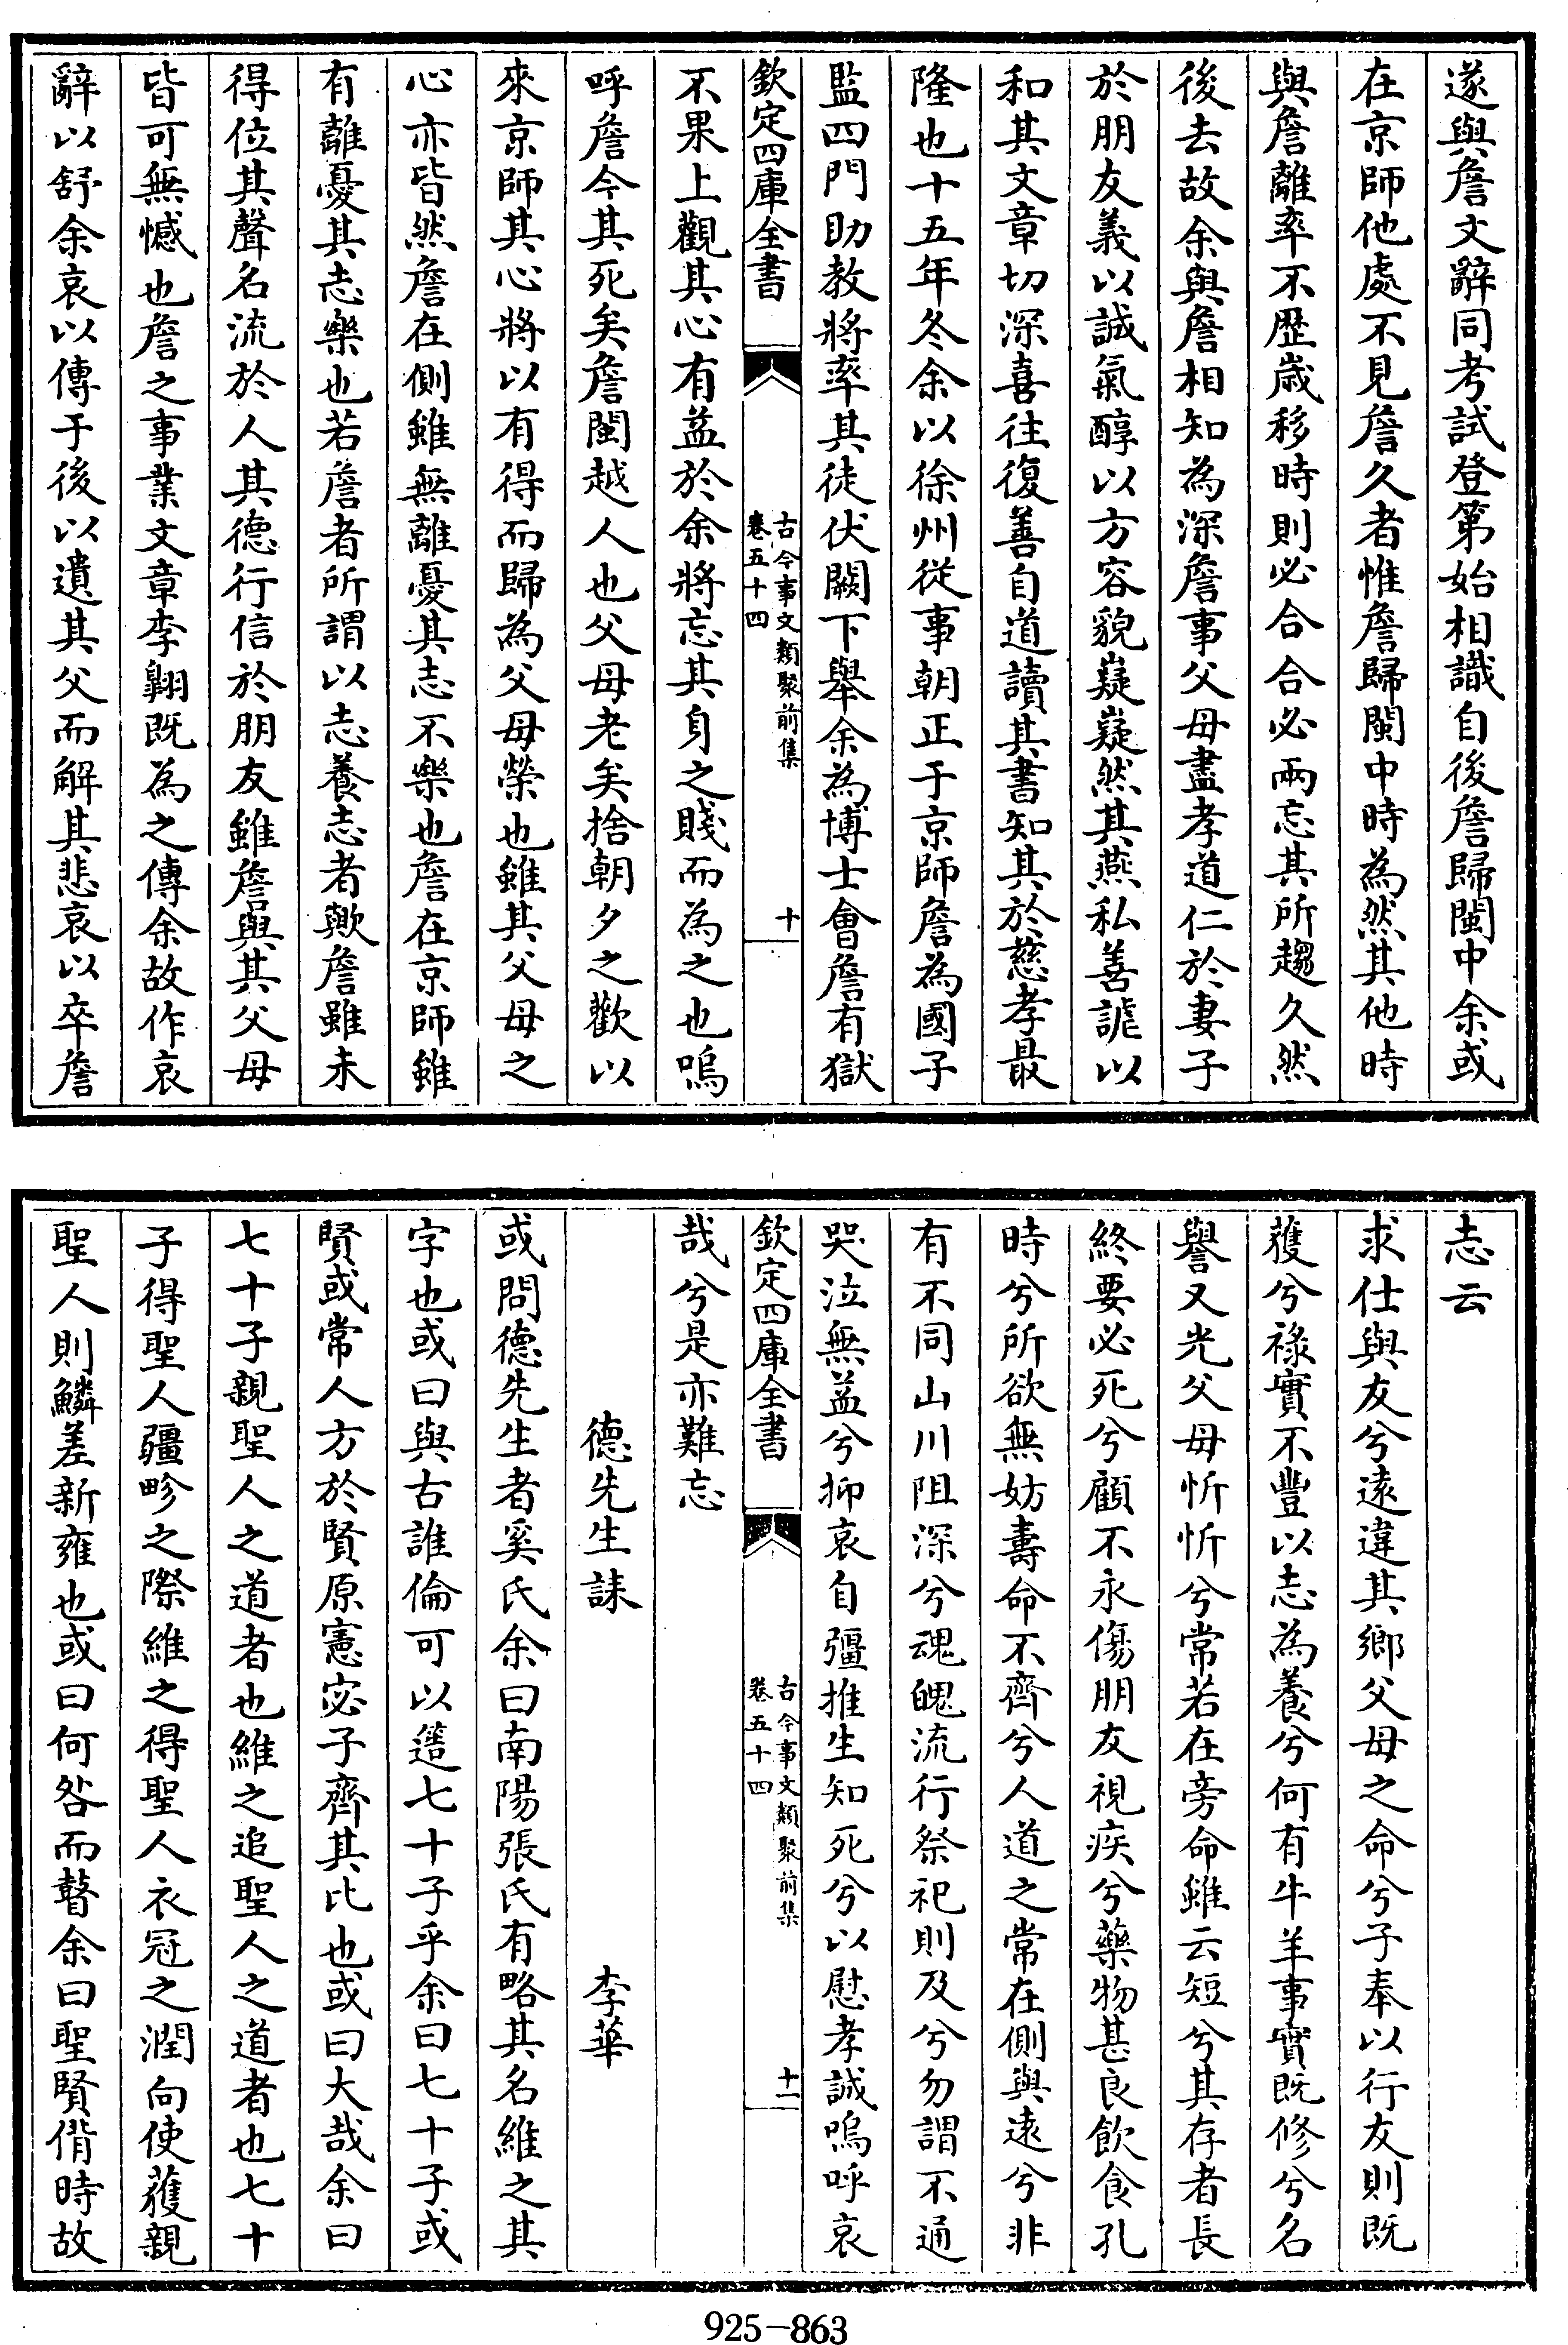 遂與詹文辭同考試登第始相識自後詹歸閩中余或
在京師他處不見詹久者惟詹歸閩中時為然其他時
與詹離率不歷歲移時則必合合必兩忘其所趨久然
後去故余與詹相知為深詹事父母盡孝道仁於妻子
於朋友義以誠氣醇以方容貌嶷嶷然其燕私善謔以
和其文章切深喜往復善自道讀其書知其於慈孝最
隆也十五年冬余以徐州從事朝正于京師詹為國子
監四門助教將率其徒伏闕下舉余為博士會詹有獄
欽定四庫全書
古今事文類聚前集
卷五十四
十
不果上觀其心有益於余將忘其身之賤而為之也嗚
呼詹今其死矣詹閩越人也父母老矣捨朝夕之歡以
來京師其心將以有得而歸為父母榮也雖其父母之
心亦皆然詹在側雖無離憂其志不樂也詹在京師雖
有離憂其志樂也若詹者所謂以志養志者歟詹雖未
得位其聲名流於人其德行信於朋友雖詹與其父母
皆可無憾也詹之事業文章李翺既為之傳余故作哀
辭以舒余哀以傳于後以遺其父而解其悲哀以卒詹
志云
求仕與友兮遠違其鄉父母之命兮子奉以行友則既
獲兮祿實不豐以志為養兮何有牛羊事實既修兮名
譽又光父母忻忻兮常若在旁命雖云短兮其存者長
終要必死兮顧不永傷朋友視疾兮藥物甚良飲食孔
時兮所欲無妨壽命不齊兮人道之常在側與遠兮非
有不同山川阻深兮魂魄流行祭祀則及兮勿謂不通
哭泣無益兮抑哀自彊推生知死兮以慰孝誠嗚呼哀
欽定四庫全書
古今事文類聚前集
卷五十四
十一
哉兮是亦難忘
德先生誄 李華
或問德先生者奚氏余曰南陽張氏有略其名維之其
字也或曰與古誰倫可以簉七十子乎余曰七十子或
賢或常人方於賢原憲宓子齊其比也或曰大哉余曰
七十子親聖人之道者也維之追聖人之道者也七十
子得聖人疆畛之際維之得聖人衣冠之潤向使獲親
聖人則鱗差新雍也或曰何咎而瞽余曰聖賢偝時故
925-863